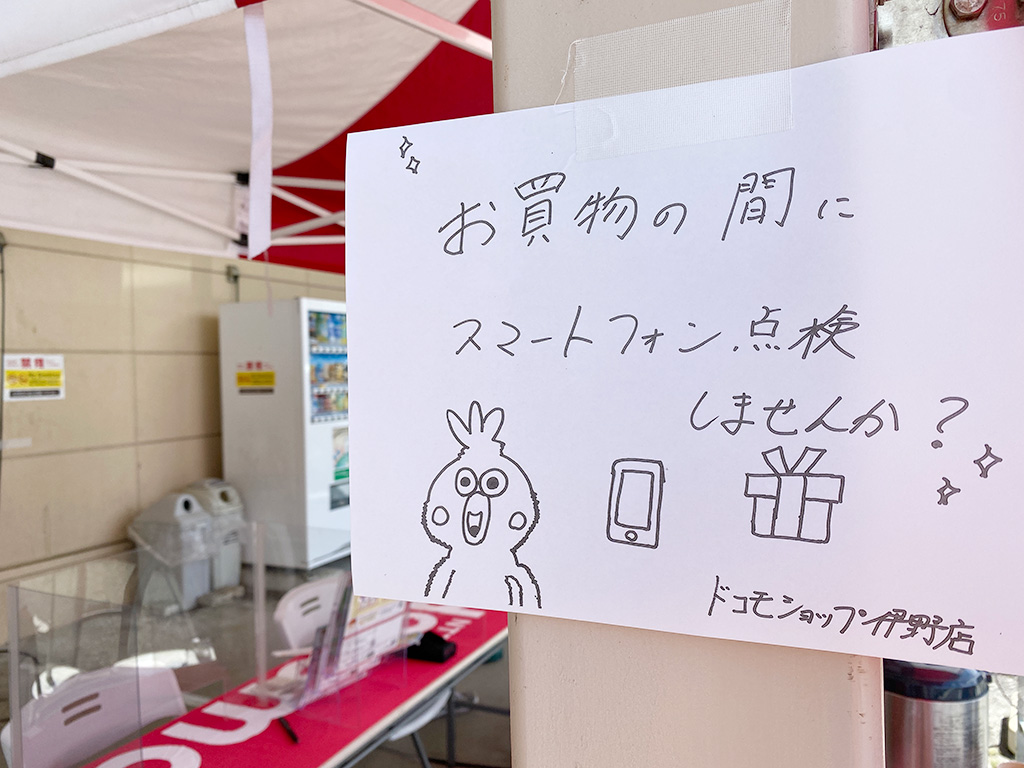 お買物の間に
スマートフォン点検
しませんか?
ドコモショップ伊野店
禁煙
75